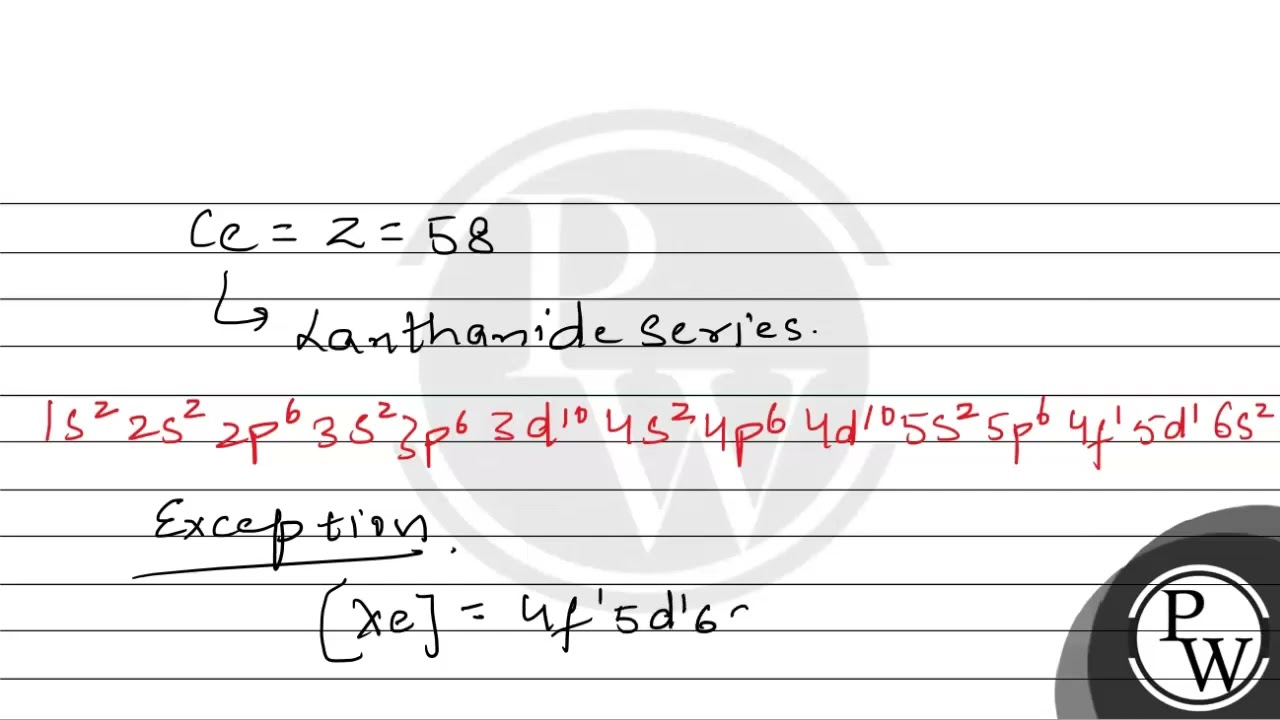 Ce = Z = 58
↳ Lanthanide series.
1s² 2s² 2p⁶ 3s² 3p⁶ 3d¹⁰ 4s² 4p⁶ 4d¹⁰ 5s² 5p⁶ 4f¹ 5d¹ 6s²
Exception.
[Xe] = 4f¹ 5d¹ 6
P
W
P
W